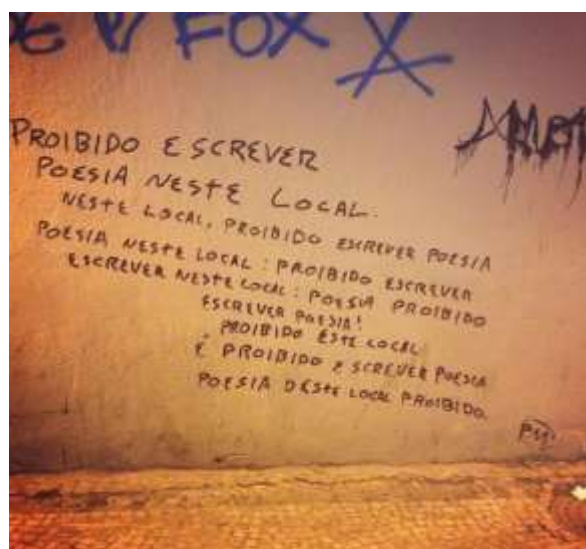 FOX
PROIBIDO ESCREVER
POESIA NESTE LOCAL.
NESTE LOCAL, PROIBIDO ESCREVER POESIA
POESIA NESTE LOCAL: PROIBIDO ESCREVER
ESCREVER NESTE LOCAL: POESIA PROIBIDO
ESCREVER POESIA!
PROIBIDO ESTE LOCAL
É PROIBIDO ESCREVER POESIA
POESIA DESTE LOCAL PROIBIDO.